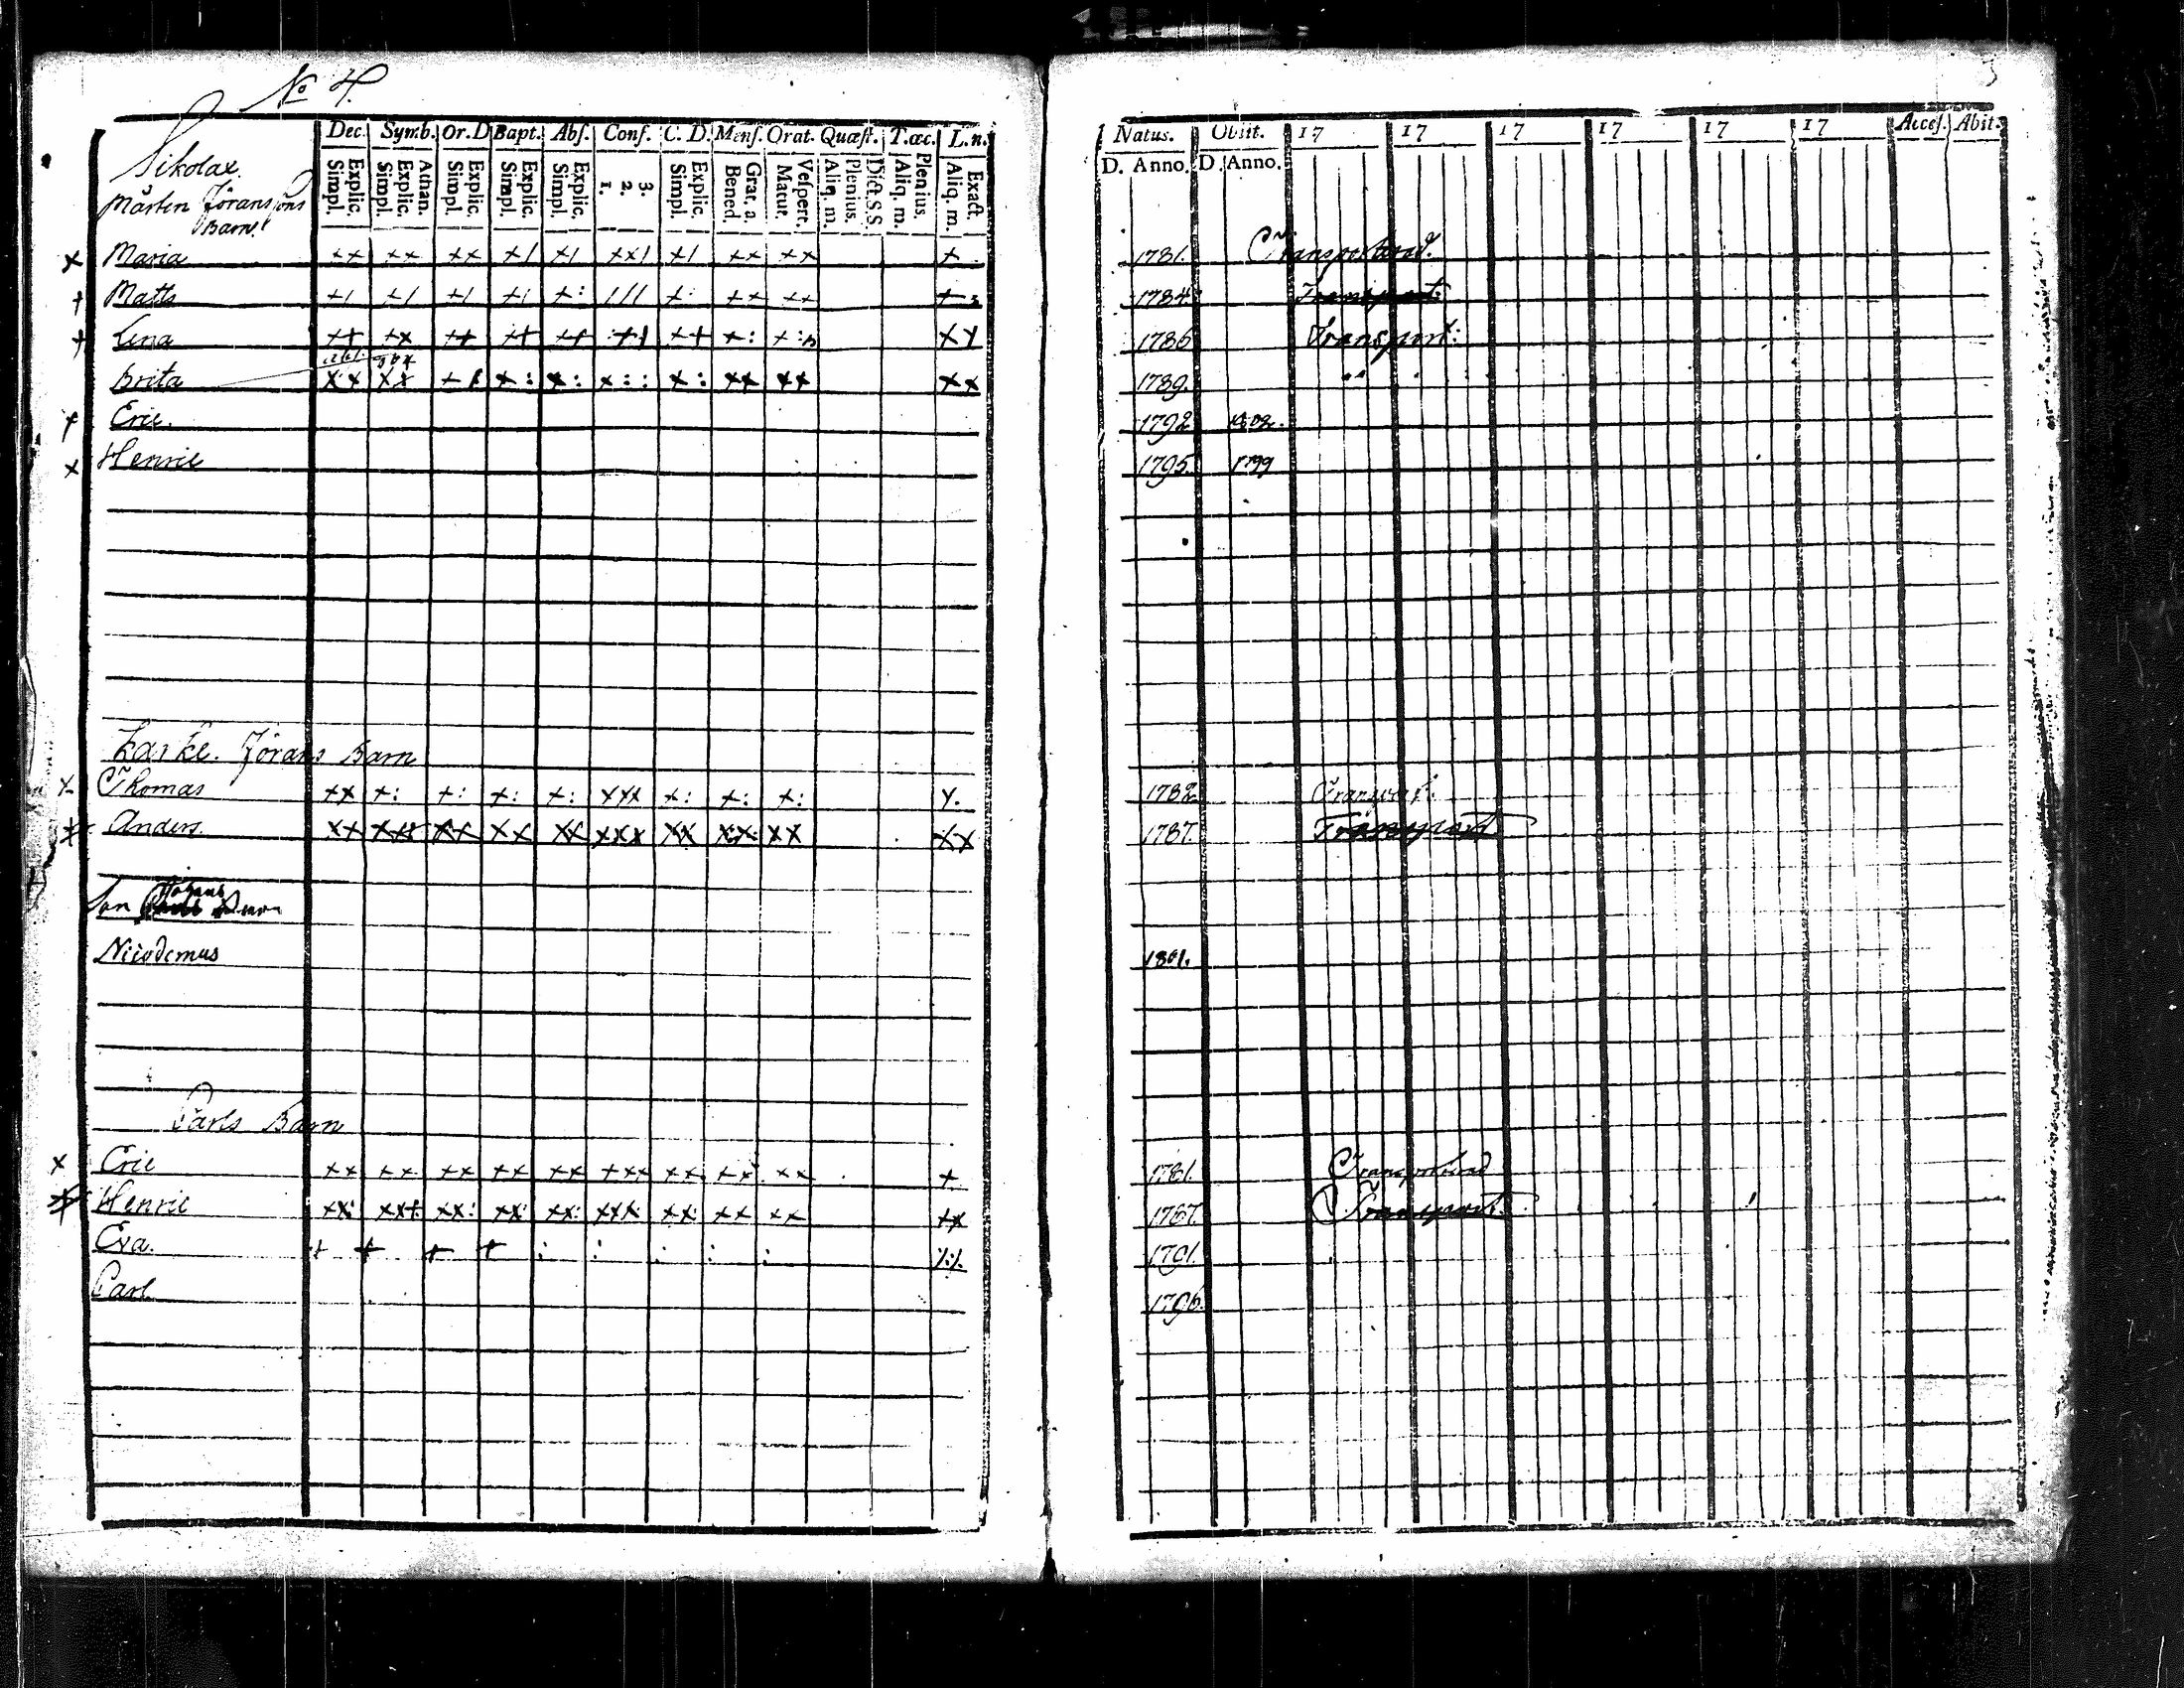 No 4.
Dec. Symb. Or.D Bapt. Abs. Conf. C. D. Mens. Orat. Quæst. T.œc. L.n.
Explic. Simpl. Athan. Explic. Simpl. Explic. Simpl. Explic. Simpl. Explic. Simpl. 3. 2. 1. Explic. Simpl. Grat. a. Bened. Vespert. Matut. Dict. S S Plenius. Aliq. m. Plenius. Aliq. m. Exact. Aliq. m.
Natus. Obiit. 17 17 17 17 17 17 Acces. Abit.
D. Anno. D. Anno.
Nikolax.
Mårten Jöransons
Barn.
Maria 1781. Transporterad.
Matts 1784. Transport:
Lena 1786 Transport:
Brita 1789.
Eric. 1792 1802.
Henric 1795. 1799
Jörans Barn
Thomas 1782. Transport:
Anders. 1787. Transport
Johans
Nicodemus 1801.
Carls Barn
Eric 1781. Transporterad
Henric 1787. Transport
Eva. 1791.
Carl 1796.